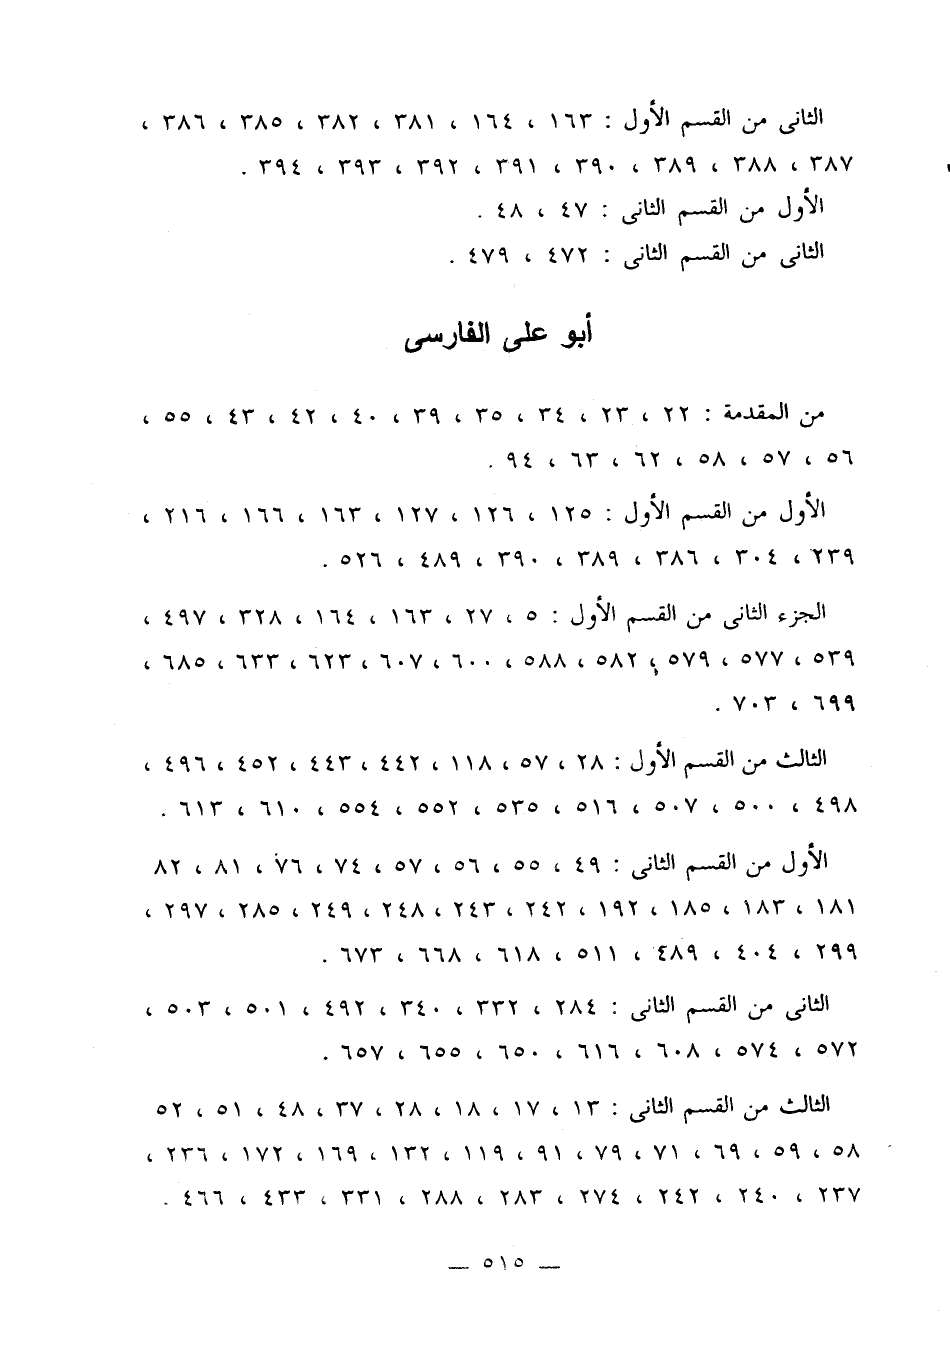 الثانى من القسم الأول : ١٦٣ ، ١٦٤ ، ٣٨١ ، ٣٨٢ ، ٣٨٥ ، ٣٨٦ ،
٣٨٧ ، ٣٨٨ ، ٣٨٩ ، ٣٩٠ ، ٣٩١ ، ٣٩٢ ، ٣٩٣ ، ٣٩٤ .
الأول من القسم الثانى : ٤٧ ، ٤٨ .
الثانى من القسم الثانى : ٤٧٢ ، ٤٧٩ .
أبو على الفارسى
من المقدمة : ٢٢ ، ٢٣ ، ٣٤ ، ٣٥ ، ٣٩ ، ٤٠ ، ٤٢ ، ٤٣ ، ٥٥ ،
٥٦ ، ٥٧ ، ٥٨ ، ٦٢ ، ٦٣ ، ٩٤ .
الأول من القسم الأول : ١٢٥ ، ١٢٦ ، ١٢٧ ، ١٦٣ ، ١٦٦ ، ٢١٦ ،
٢٣٩ ، ٣٠٤ ، ٣٨٦ ، ٣٨٩ ، ٣٩٠ ، ٤٨٩ ، ٥٢٦ .
الجزء الثانى من القسم الأول : ٥ ، ٢٧ ، ١٦٣ ، ١٦٤ ، ٣٢٨ ، ٤٩٧ ،
٥٣٩ ، ٥٧٧ ، ٥٧٩ ، ٥٨٢ ، ٥٨٨ ، ٦٠٠ ، ٦٠٧ ، ٦٢٣ ، ٦٣٣ ، ٦٨٥ ،
٦٩٩ ، ٧٠٣ .
الثالث من القسم الأول : ٢٨ ، ٥٧ ، ١١٨ ، ٤٤٢ ، ٤٤٣ ، ٤٥٢ ، ٤٩٦ ،
٤٩٨ ، ٥٠٠ ، ٥٠٧ ، ٥١٦ ، ٥٣٥ ، ٥٥٢ ، ٥٥٤ ، ٦١٠ ، ٦١٣ .
الأول من القسم الثانى : ٤٩ ، ٥٥ ، ٥٦ ، ٥٧ ، ٧٤ ، ٧٦ ، ٨١ ، ٨٢
١٨١ ، ١٨٣ ، ١٨٥ ، ١٩٢ ، ٢٤٢ ، ٢٤٣ ، ٢٤٨ ، ٢٤٩ ، ٢٨٥ ، ٢٩٧ ،
٢٩٩ ، ٤٠٤ ، ٤٨٩ ، ٥١١ ، ٦١٨ ، ٦٦٨ ، ٦٧٣ .
الثانى من القسم الثانى : ٢٨٤ ، ٣٣٢ ، ٣٤٠ ، ٤٩٢ ، ٥٠١ ، ٥٠٣ ،
٥٧٢ ، ٥٧٤ ، ٦٠٨ ، ٦١٦ ، ٦٥٠ ، ٦٥٥ ، ٦٥٧ .
الثالث من القسم الثانى : ١٣ ، ١٧ ، ١٨ ، ٢٨ ، ٣٧ ، ٤٨ ، ٥١ ، ٥٢
٥٨ ، ٥٩ ، ٦٩ ، ٧١ ، ٧٩ ، ٩١ ، ١١٩ ، ١٣٢ ، ١٦٩ ، ١٧٢ ، ٢٣٦ ،
٢٣٧ ، ٢٤٠ ، ٢٤٢ ، ٢٧٤ ، ٢٨٣ ، ٢٨٨ ، ٣٣١ ، ٤٣٣ ، ٤٦٦ .
— ٥١٥ —